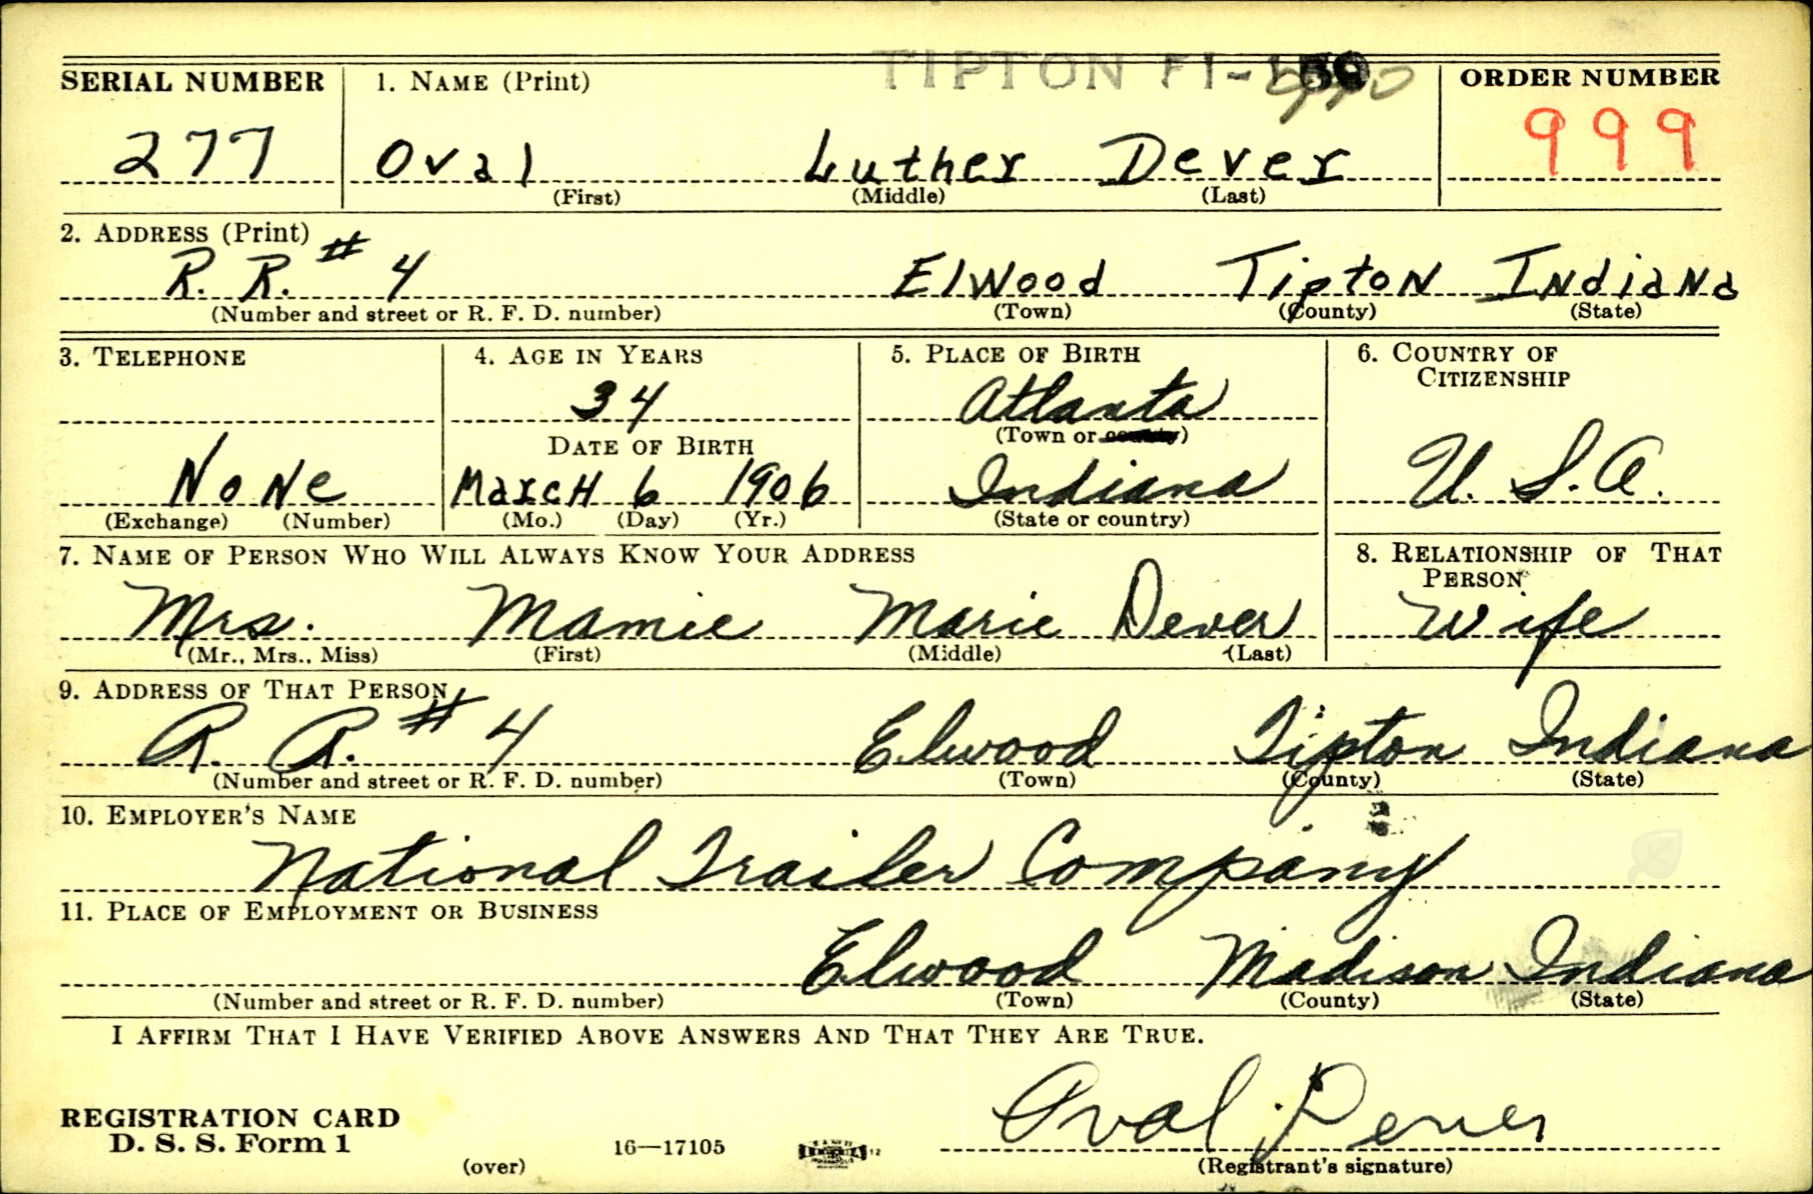 TIPTON FI-
SERIAL NUMBER 1. NAME (Print) ORDER NUMBER
277 Oval Luther Dever 999
(First) (Middle) (Last)
2. ADDRESS (Print)
R. R. # 4 Elwood Tipton Indiana
(Number and street or R. F. D. number) (Town) (County) (State)
3. TELEPHONE 4. AGE IN YEARS 5. PLACE OF BIRTH 6. COUNTRY OF CITIZENSHIP
34 Atlanta
DATE OF BIRTH (Town or county)
None March 6 1906 Indiana U. S. A.
(Exchange) (Number) (Mo.) (Day) (Yr.) (State or country)
7. NAME OF PERSON WHO WILL ALWAYS KNOW YOUR ADDRESS 8. RELATIONSHIP OF THAT PERSON
Mrs. Mamie Marie Dever Wife
(Mr., Mrs., Miss) (First) (Middle) (Last)
9. ADDRESS OF THAT PERSON
R. R. # 4 Elwood Tipton Indiana
(Number and street or R. F. D. number) (Town) (County) (State)
10. EMPLOYER'S NAME
National Trailer Company
11. PLACE OF EMPLOYMENT OR BUSINESS
Elwood Madison Indiana
(Number and street or R. F. D. number) (Town) (County) (State)
I AFFIRM THAT I HAVE VERIFIED ABOVE ANSWERS AND THAT THEY ARE TRUE.
Oval Dever
REGISTRATION CARD
D. S. S. Form 1 16—17105
(over) (Registrant's signature)